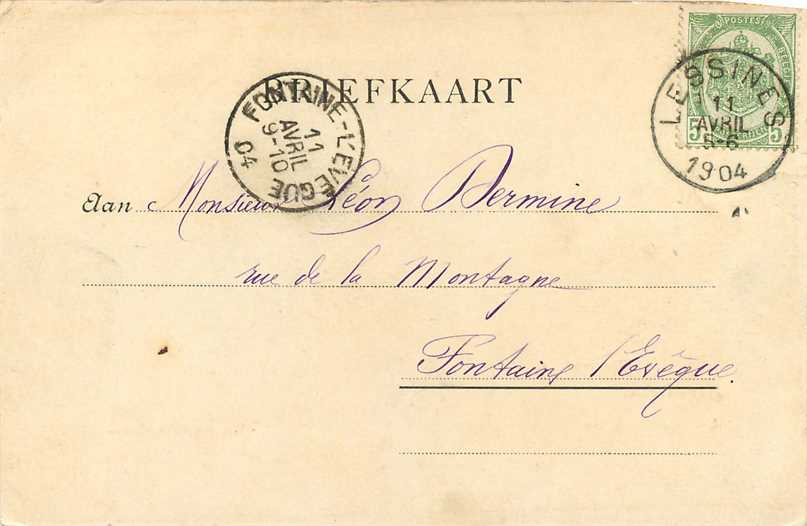 BRIEFKAART
POSTES
5 5
LESSINES
11
AVRIL
5-6
1904
FONTAINE-L'EVEQUE
11
AVRIL
9-10
04
Aan Monsieur Léon Dermine
rue de la Montagne
Fontaine l'Evêque.